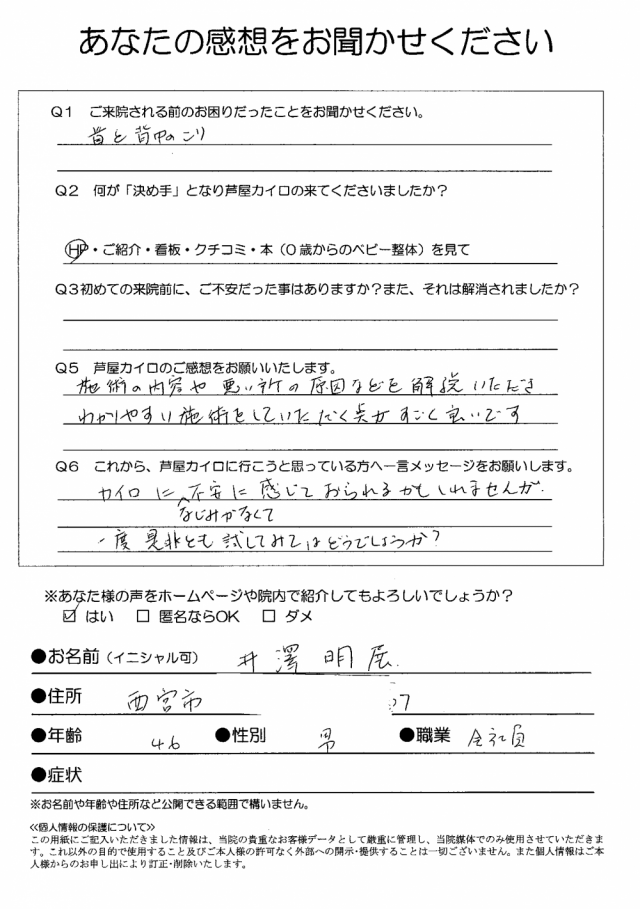 あなたの感想をお聞かせください
Q1 ご来院される前のお困りだったことをお聞かせください。
首と背中のこり
Q2 何が「決め手」となり芦屋カイロの来てくださいましたか？
HP・ご紹介・看板・クチコミ・本（0歳からのベビー整体）を見て
Q3初めての来院前に、ご不安だった事はありますか？また、それは解消されましたか？
Q5 芦屋カイロのご感想をお願いいたします。
施術の内容や悪い所の原因などを解説いただき
わかりやすい施術をしていただく点がすごく良いです
Q6 これから、芦屋カイロに行こうと思っている方へ一言メッセージをお願いします。
カイロに不安に感じておられるかもしれませんが、
なじみがなくて
一度是非とも試してみてはどうでしょうか？
※あなた様の声をホームページや院内で紹介してもよろしいでしょうか？
☑ はい □ 匿名ならOK □ ダメ
●お名前（イニシャル可） 井澤明展
●住所 西宮市 07
●年齢 46 ●性別 男 ●職業 会社員
●症状
※お名前や年齢や住所など公開できる範囲で構いません。
≪個人情報の保護について≫
この用紙にご記入いただきました情報は、当院の貴重なお客様データとして厳重に管理し、当院媒体でのみ使用させていただきま
す。これ以外の目的で使用すること及びご本人様の許可なく外部への開示・提供することは一切ございません。また個人情報はご本
人様からのお申し出により訂正・削除いたします。